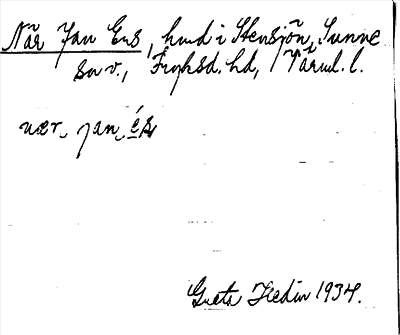 När Jan Ers, hmd i Stensjön, Sunne
sn v., Fryksd. hd, Värml. l.
nær, jan, é̱s̱
Greta Hedin 1934.